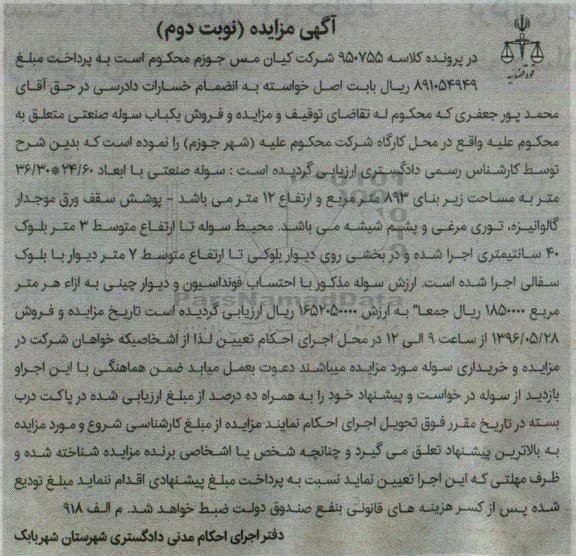 آگهی مزایده (نوبت دوم)
قوه قضاییه
در پرونده کلاسه ۹۵۰۷۵۵ شرکت کیان مس جوزم محکوم است به پرداخت مبلغ
۸۹۱۰۵۴۹۴۹ ریال بابت اصل خواسته به انضمام خسارات دادرسی در حق آقای
محمد پور جعفری که محکوم له تقاضای توقیف و مزایده و فروش یکباب سوله صنعتی متعلق به
محکوم علیه واقع در محل کارگاه شرکت محکوم علیه (شهر جوزم) را نموده است که بدین شرح
توسط کارشناس رسمی دادگستری ارزیابی گردیده است : سوله صنعتی با ابعاد ۲۴/۶۰*۳۶/۳۰
متر به مساحت زیر بنای ۸۹۳ متر مربع و ارتفاع ۱۲ متر می باشد - پوشش سقف ورق موجدار
گالوانیزه، توری مرغی و پشم شیشه می باشد. محیط سوله تا ارتفاع متوسط ۳ متر بلوک
۴۰ سانتیمتری اجرا شده و در بخشی روی دیوار بلوکی تا ارتفاع متوسط ۷ متر دیوار با بلوک
سفالی اجرا شده است. ارزش سوله مذکور با احتساب فونداسیون و دیوار چینی به ازاء هر متر
مربع ۱۸۵۰۰۰۰ ریال جمعا" به ارزش ۱۶۵۲۰۵۰۰۰۰ ریال ارزیابی گردیده است تاریخ مزایده و فروش
۱۳۹۶/۰۵/۲۸ از ساعت ۹ الی ۱۲ در محل اجرای احکام تعیین لذا از اشخاصیکه خواهان شرکت در
مزایده و خریداری سوله مورد مزایده میباشند دعوت بعمل میابد ضمن هماهنگی با این اجراو
بازدید از سوله در خواست و پیشنهاد خود را به همراه ده درصد از مبلغ ارزیابی شده در پاکت درب
بسته در تاریخ مقرر فوق تحویل اجرای احکام نمایند مزایده از مبلغ کارشناسی شروع و مورد مزایده
به بالاترین پیشنهاد تعلق می گیرد و چنانچه شخص یا اشخاصی برنده مزایده شناخته شده و
ظرف مهلتی که این اجرا تعیین نماید نسبت به پرداخت مبلغ پیشنهادی اقدام ننماید مبلغ تودیع
شده پس از کسر هزینه های قانونی بنفع صندوق دولت ضبط خواهد شد. م الف ۹۱۸
دفتر اجرای احکام مدنی دادگستری شهرستان شهربابک
ParsNamadData